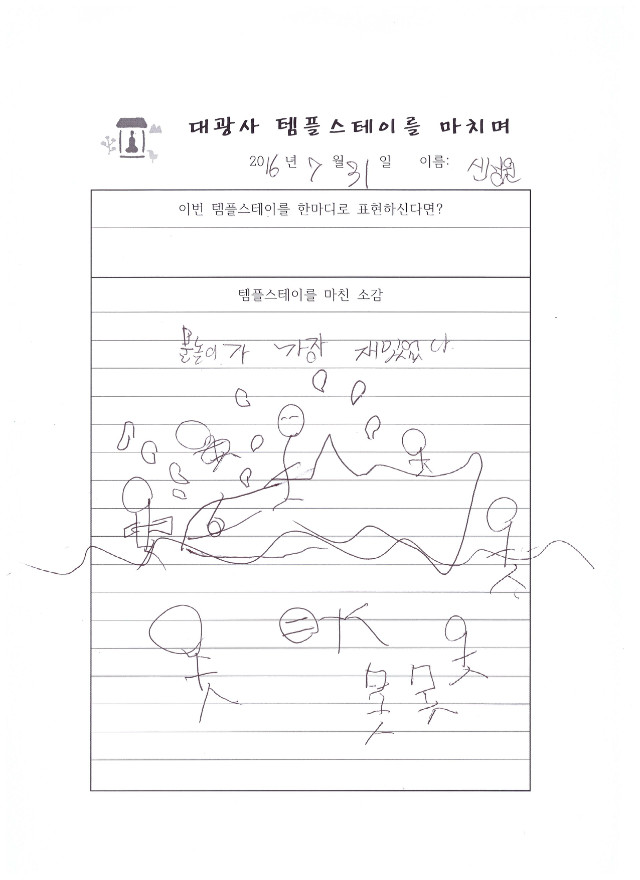 대광사 템플스테이를 마치며
2016 년 7 월 31 일 이름:
이번 템플스테이를 한마디로 표현하신다면?
템플스테이를 마친 소감
물놀이가 가장 재밌었다